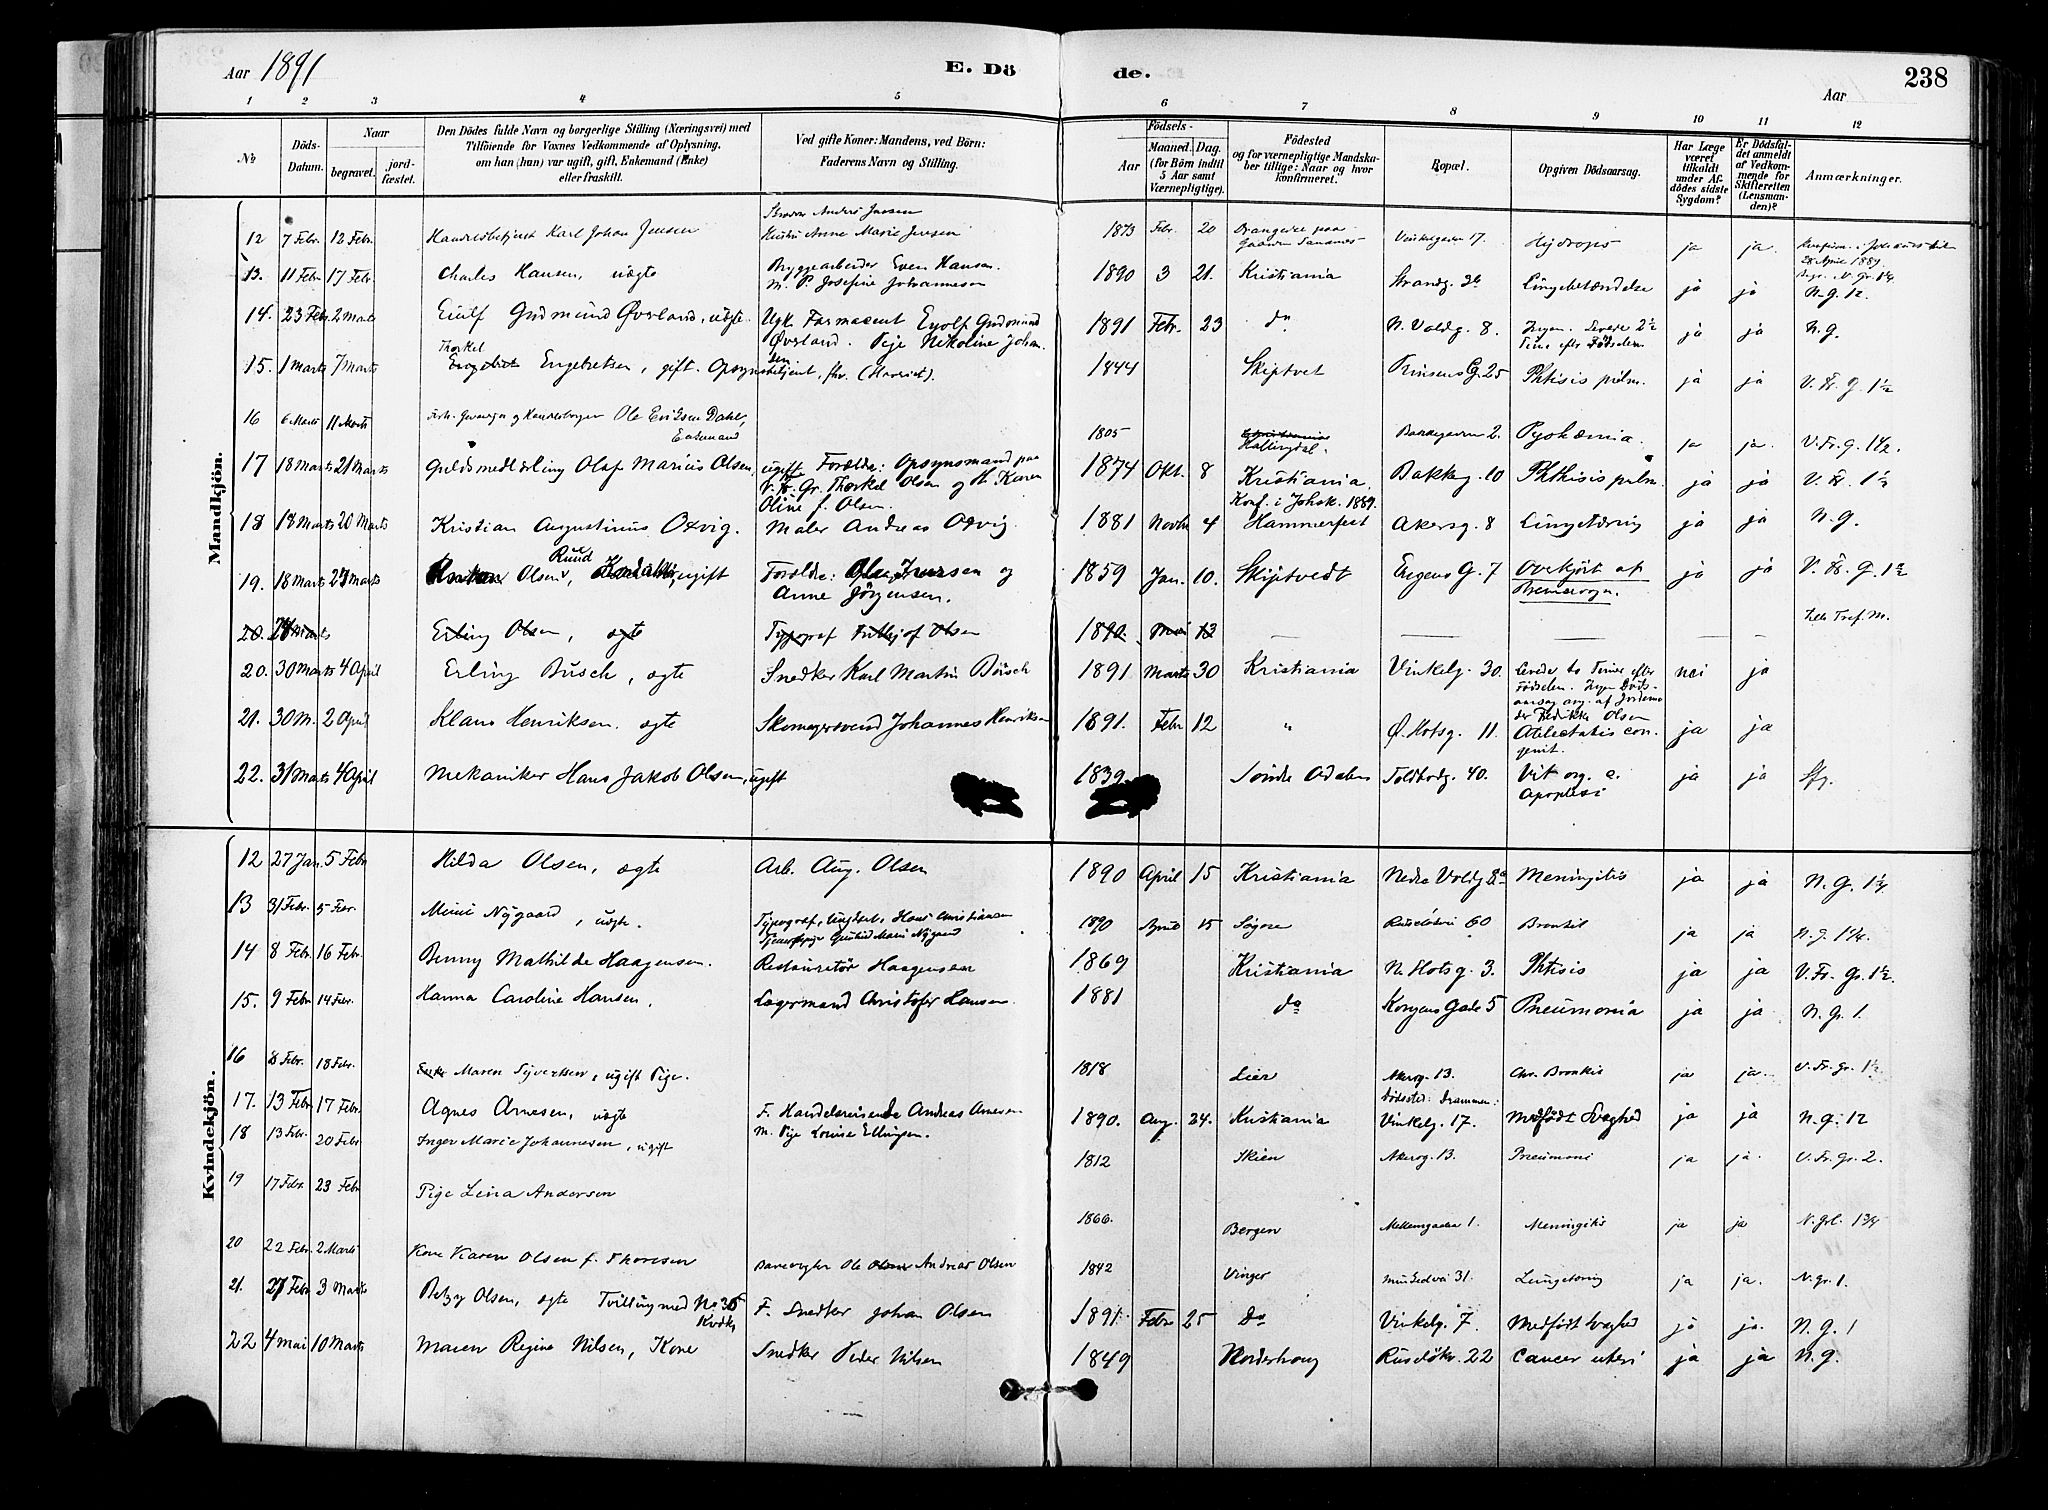 Aar 1891
E. Dö
de.
Aar
238
1 2 3 4 5 6 7 8 9 10 11 12
No
Döds-Datum.
Naar
begravet.
jord-fæstet.
Den Dödes fulde Navn og borgerlige Stilling (Næringsvei) med
Tilföiende for Voxnes Vedkommende af Oplysning,
om han (hun) var ugift, gift, Enkemand (Enke)
eller fraskilt.
Ved gifte Koner: Mandens, ved Börn:
Faderens Navn og Stilling.
Födsels-
Aar
Maaned. Dag.
(for Börn indtil
5 Aar samt
Værnepligtige).
Födested
og for værnepligtige Mandska-
ber tillige: Naar og hvor
konfirmeret.
Bopæl.
Opgiven Dödsaarsag.
Har Læge
været
tilkaldt
under Af-
dödes sidste
Sygdom?
Er Dödsfal-
det anmeldt
af Vedkom-
mende for
Skifteretten
(Lensman-
den)?
Anmærkninger.
Mandkjön.
12 7 Febr. 12 Febr. Handelsbetjent Karl Johan Jensen
Anders Jensen
Hustru Anne Marie Jensen
1873 Febr. 20 Vinkelgaden 17. Hydrops ja ja.
28 April 1889
13. 11 Febr 17 Febr. Charles Hansen, uægte
Byggearbeider Even Hansen.
M. P. Josefine Johannesen
1890 3 21. Kristiania Strandg. Lungebetændelse ja ja N. G. 12
14. 23 Febr 2 Marts Eiulf Gudmund Øvsland, uægte.
Ugk. Farmaceut Eyolf Gudmund
Øvsland. Pige Nikoline Johan-
sen
1891 Febr. 23 do N. Voldg. 8. Ingen. Levede 2½
Time efter Fødselen ja ja N. G.
15. 1 Marts 7 Marts Thorkel
Engebretsen, gift. Opsynsbetjent, fhv. (Havriet).
1844 Skiptvet Prinsens G. 25 Phtisis pulm. ja ja V. Fr. G. 1½
16 6 Marts 11 Marts Ole Eriksen Dahl,
Enkemand
1805 Hallingdal. Bakkegaden 2. Pyohæmia. ja ja. V. Fr. G. 1½.
17 18 Marts 21 Marts Guldsmedlærling Olaf Marius Olsen, ugift
Forældre: Opsynsmand paa
V. Fr. Gr. Thorkel Olsen og H. Karen
Oline f. Olsen.
1874 Okt. 8 Kristiania.
Konf. i Johsk. 1889. Bakkeg. 10 Phthisis pulm. ja ja V. Fr. 1½
18 18 Marts 20 Marts Kristian Augustinus Oxvig. Maler Andreas Oxvig.
1881 Novbr 4 Hammerfest Akersg. 8 Lungetæring ja ja N. G.
19. 18 Marts 23 Marts Olsen, Ruud ugift
Forældre: Ole Iversen og
Anne Jörgensen.
1859 Jan. 10. Skiptvedt Engens G. 7 Overkjört af ja ja V. Fr. G. 1½
20. Marts Erling Olsen, ægte Typograf Frithjof Olsen 1890. Mai 13 — — — —
20. 30 Marts 4 April Erling Busch, ægte Snedker Karl Martin Busch
1891 Marts 30 Kristiania Vinkelg. 30. Levede to Timer efter
Födselen. Ingen Döds-
aarsag ang. af Jordemo-
der Fredrikke Olsen nei ja
21. 30 M. 2 April Klaus Henriksen. ægte Skomagersvend Johannes Henriksen
1891. Febr 12 " Ø. Slotsg. 11. Atelectasis con-
genit. ja ja
22. 31 Marts 4 April Mekaniker Hans Jakob Olsen, ugift
1839. Söndre Odalen Toldbodg. 40. Vit. org. c.
Apoplexi ja ja
Kvindekjön.
12 27 Jan. 5 Febr Hilda Olsen, ægte Arb. Aug. Olsen
1890 April 15 Kristiania Nedre Voldg Meningitis ja ja N. G. 1¼
13 31 Febr. 5 Febr. Mimi Nygaard, uægte. Typograf, Hans Christiansen
Marie Nygaard
1890 April 15 Ruselökvei 60 Bronkit ja ja N. G. 1¼.
14 8 Febr. 16 Febr. Benny Mathilde Haagensen. Restauratör Haagensen
1869 Kristiania N. Slotsg. 3. Phtisis ja ja V. Fr. Gr. 1½.
15. 9 Febr 14 Febr. Hanna Caroline Hansen. Lagermand Christofer Hansen.
1881 do Kongens Gade 5 Pneumonia ja ja N. Gr. 1.
16 8 Febr. 18 Febr. Enke Maren Syvertsen, ugift Pige.
1818 Lier Akersg. 13. Chr. Bronkit ja ja. V. Fr. Gr. 1½
17. 13 Febr 17 Febr. Agnes Arnesen, uægte
F. Handelsreisende Andreas Arnesen
M. Pige Louise Ellingsen.
1890. Aug. 24. Kristiania Dödssted: Drammen:
Vinkelg. 17. Medfödt Svaghed ja ja N. G. 12
18 13 Febr. 20 Febr Inger Marie Johannesen, ugift
1812 Skien Akersg. 13. Pneumoni ja ja. V. Fr. Gr. 2.
19 17 Febr. 23 Febr Pige Lina Andersen
1866. Bergen Mellemgaden 1. Meningitis ja ja N. Gr. 1¾
20 22 Febr 2 Marts Kone Karen Olsen f. Thoresen Banevogter Ole Andreas Olsen
1842 Vinger Munkedvei 31. Lungetæring ja ja. N. gr. 1.
21. 27 Febr 3 Marts Betzy Olsen, ægte Tvilling med No 36
Kvdk F. Snedker Johan Olsen
1891. Febr 25 Do Vinkelg. 7. Medfödt Svaghed ja ja. N. G. 1
22 4 Mai 10 Marts Maren Regine Nilsen, Kone Snedker Peder Nilsen
1849 Norderhoug Ruselökv. 22 Cancer uteri ja ja N. G.